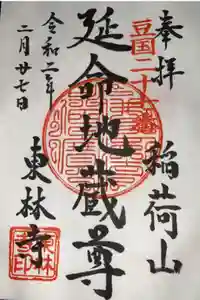 奉拝
稲荷山
豆国二十六番
延命地蔵尊
令和二年
二月廿七日
東林寺